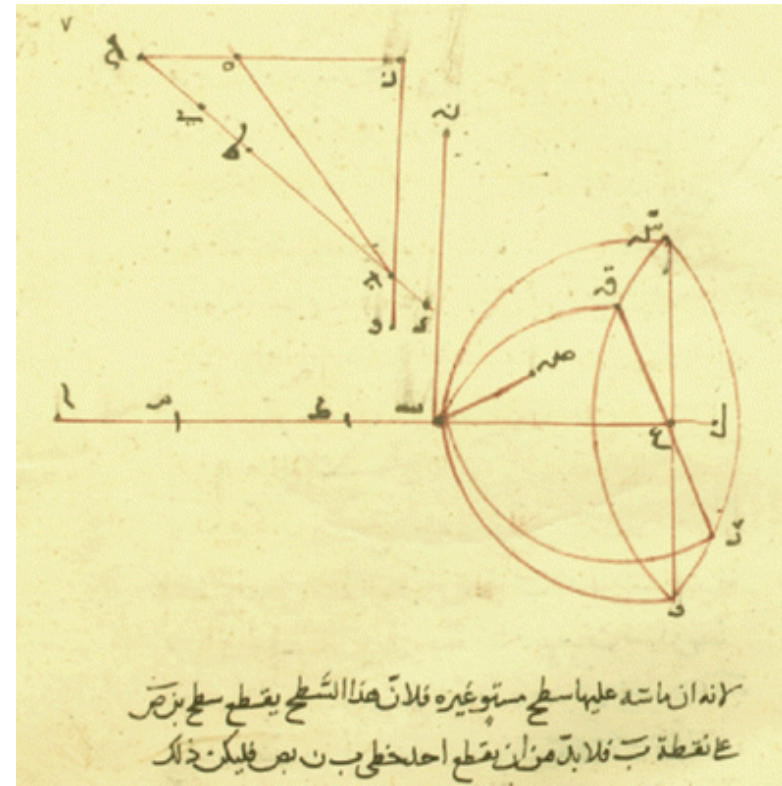 ٧
ه
ن
ق
ص
ط
ب
ع
ل
و
لانه ان ماسّه عليها سطح مستو غيره فلانّ هذا السّطح يقطع سطح بن صَ
على نقطة بَ فلا بدّ من ان يقطع احد خطي ب ن بص فليكن ذلك